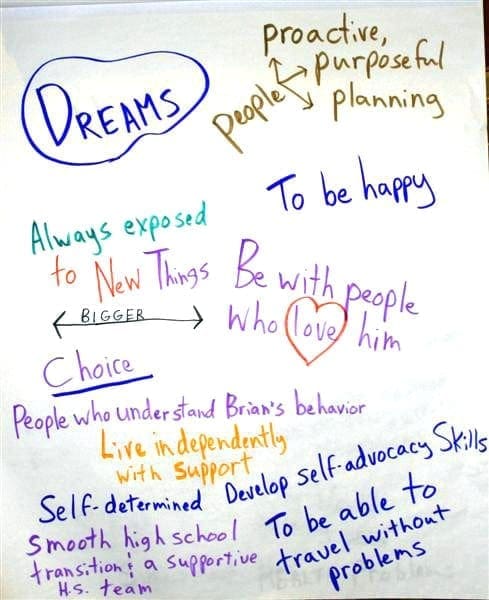 DREAMS
proactive,
people purposeful
planning
To be happy
Always exposed
to New Things
BIGGER
Be with people
Who love him
Choice
People who understand Brian's behavior
Live independently
with Support
Self-determined
Develop self-advocacy Skills
Smooth high school
transition & a supportive
H.S. team
To be able to
travel without
problems